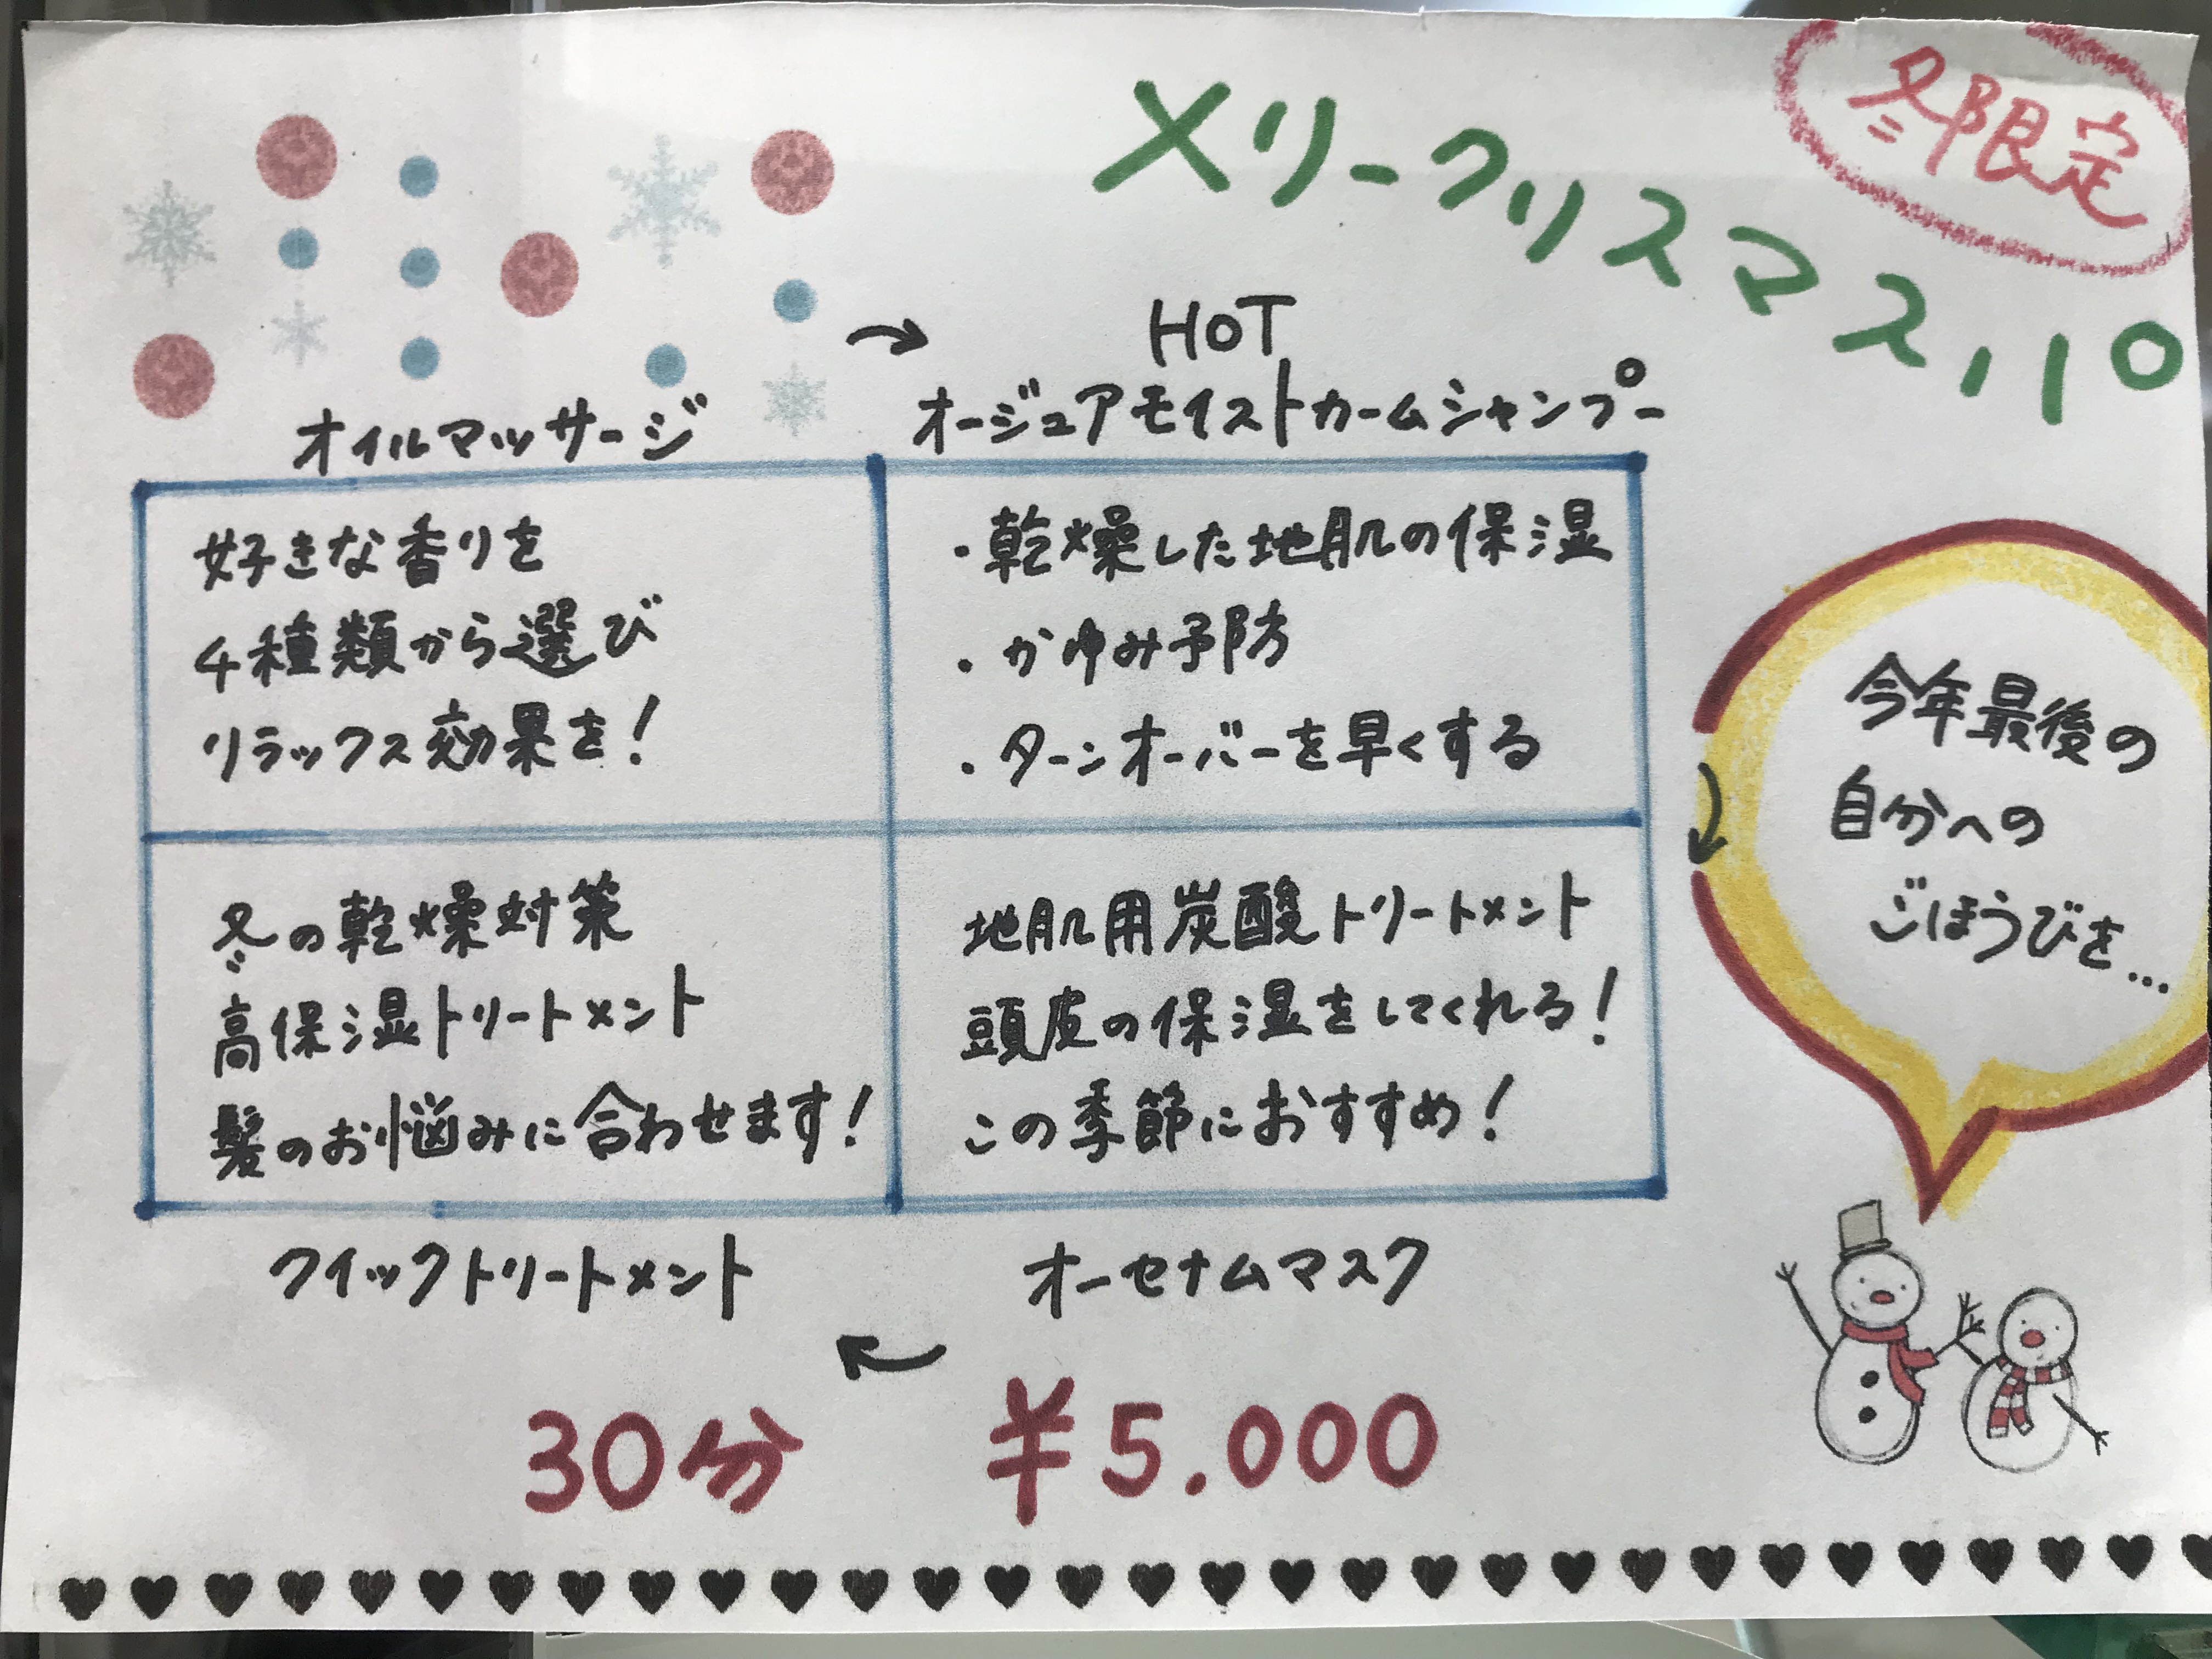 冬限定
メリークリスマス,10
HOT
オイルマッサージ
オージュアモイストカームシャンプー
好きな香りを
4種類から選び
リラックス効果を!
・乾燥した地肌の保湿
・かゆみ予防
・ターンオーバーを早くする
今年最後の
自分への
ごほうびを...
冬の乾燥対策
高保湿トリートメント
髪のお悩みに合わせます!
地肌用炭酸トリートメント
頭皮の保湿をしてくれる!
この季節におすすめ!
クイックトリートメント
オーセナムマスク
30分 ¥5.000